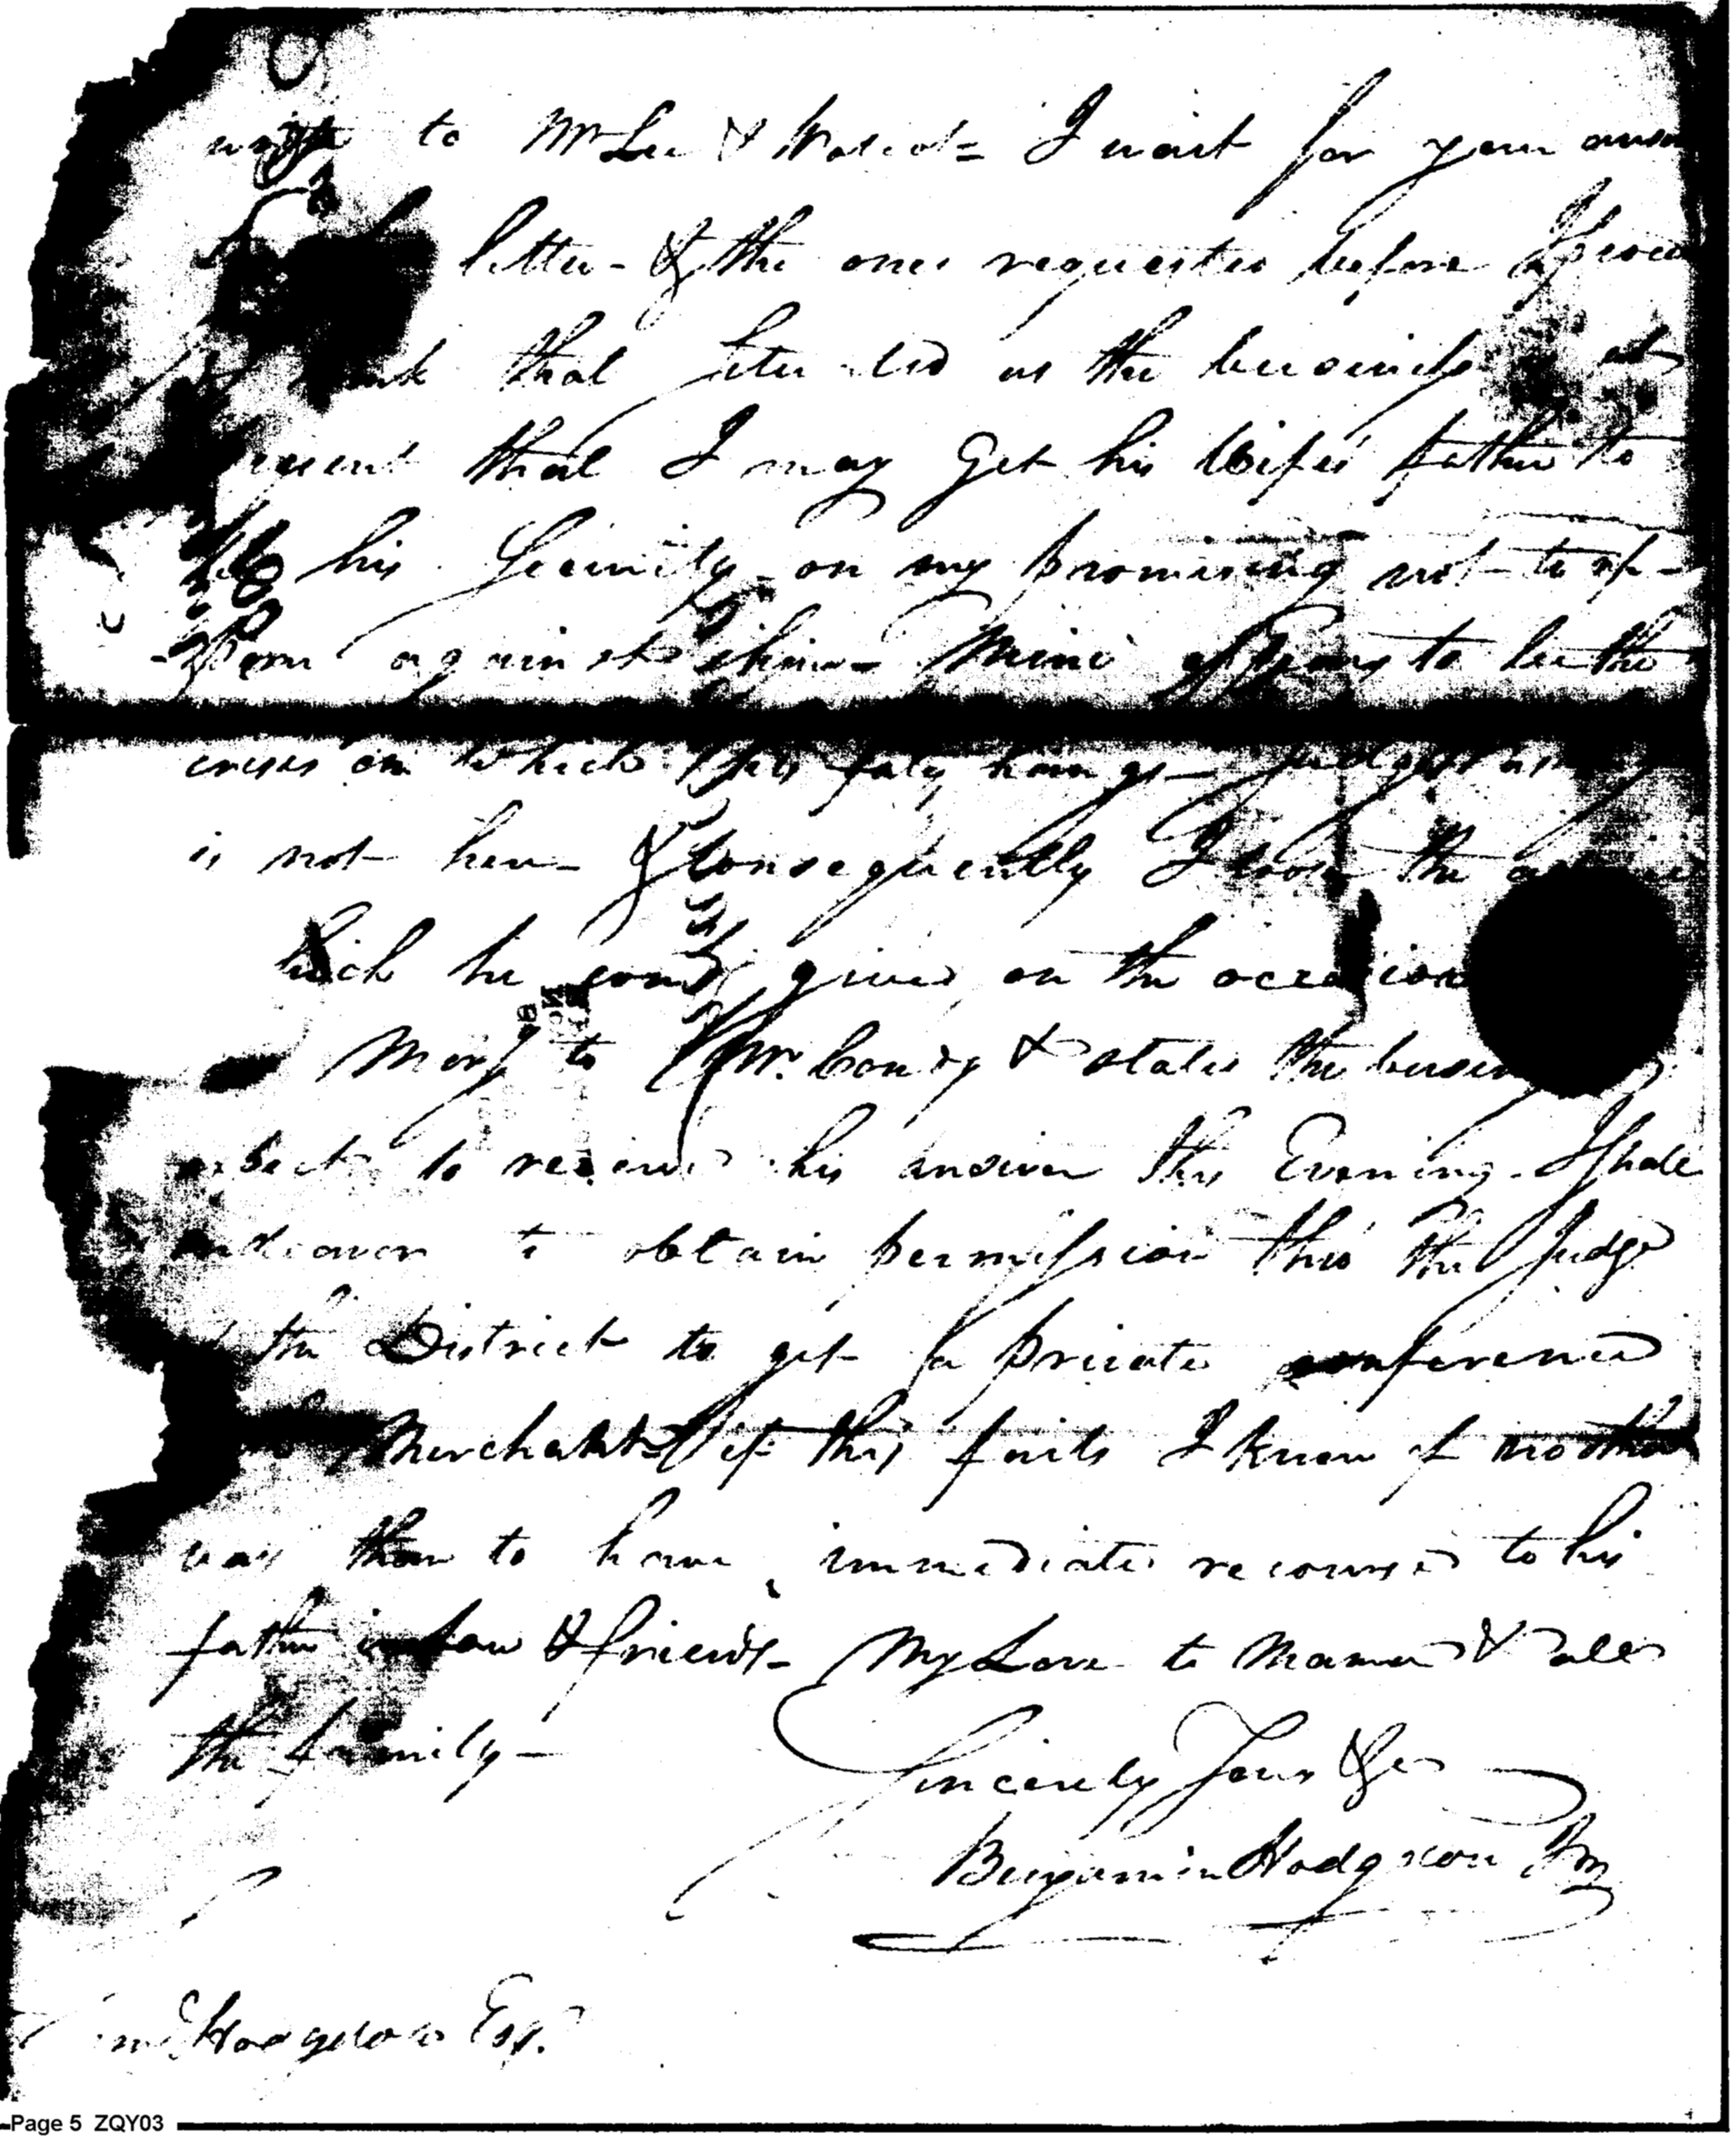 write to Mr Lee & I wait for your
letter - & the ones requested before I
that situated as the business at
present that I may Get his Wifes father to
be his Security - on my promising not to ap-
-pear against him - Mine appears to be the
crisis on which his fate hangs - Judge
is not here - & Consequently I loose the
which he could give on the occasion
to Mr. Condy & stated the
expect to receive his answer this Evening - I shall
endeavor to obtain permission thro' the Judge
of the District to get a private conference
Merchant if this fails I know of no other
way than to have immediate recourse to his
father in law & friends - My Love to Mama & all
the family -
Sincerely Yours &c
Benjamin Hodgdon Jun
Hodgdon Esq.
Page 5 ZQY03